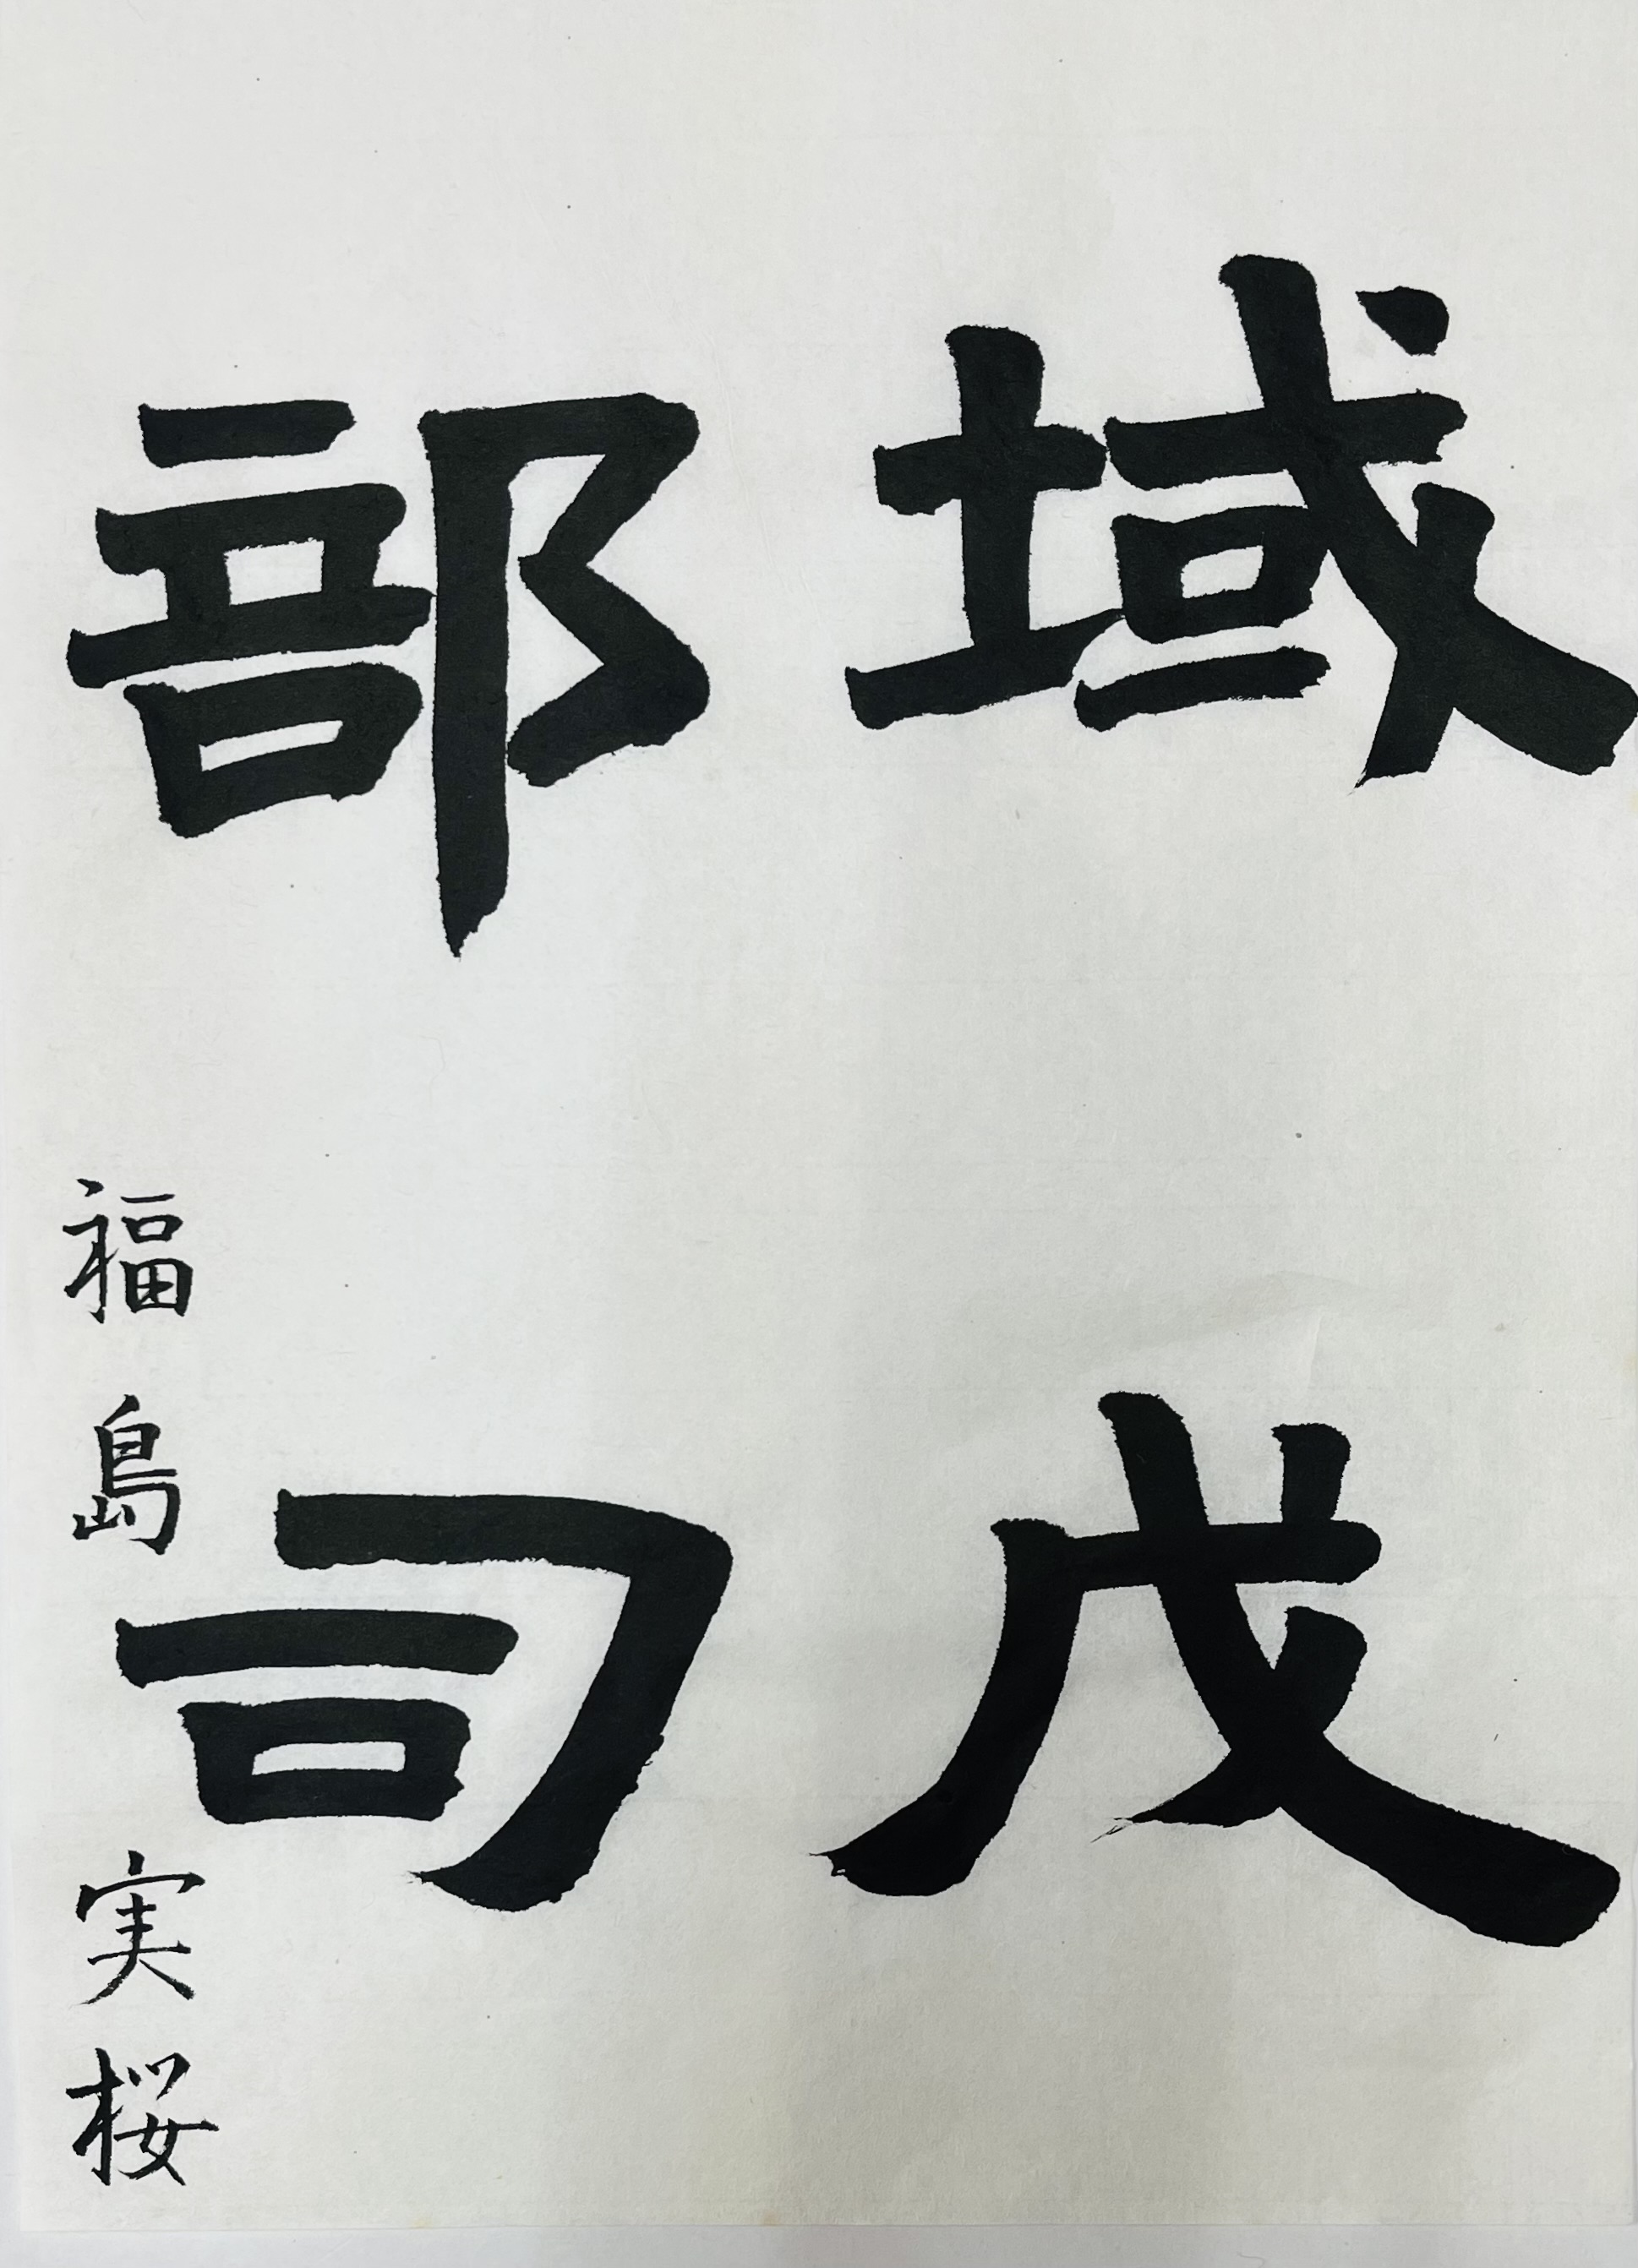 域戊
部司
福島実桜